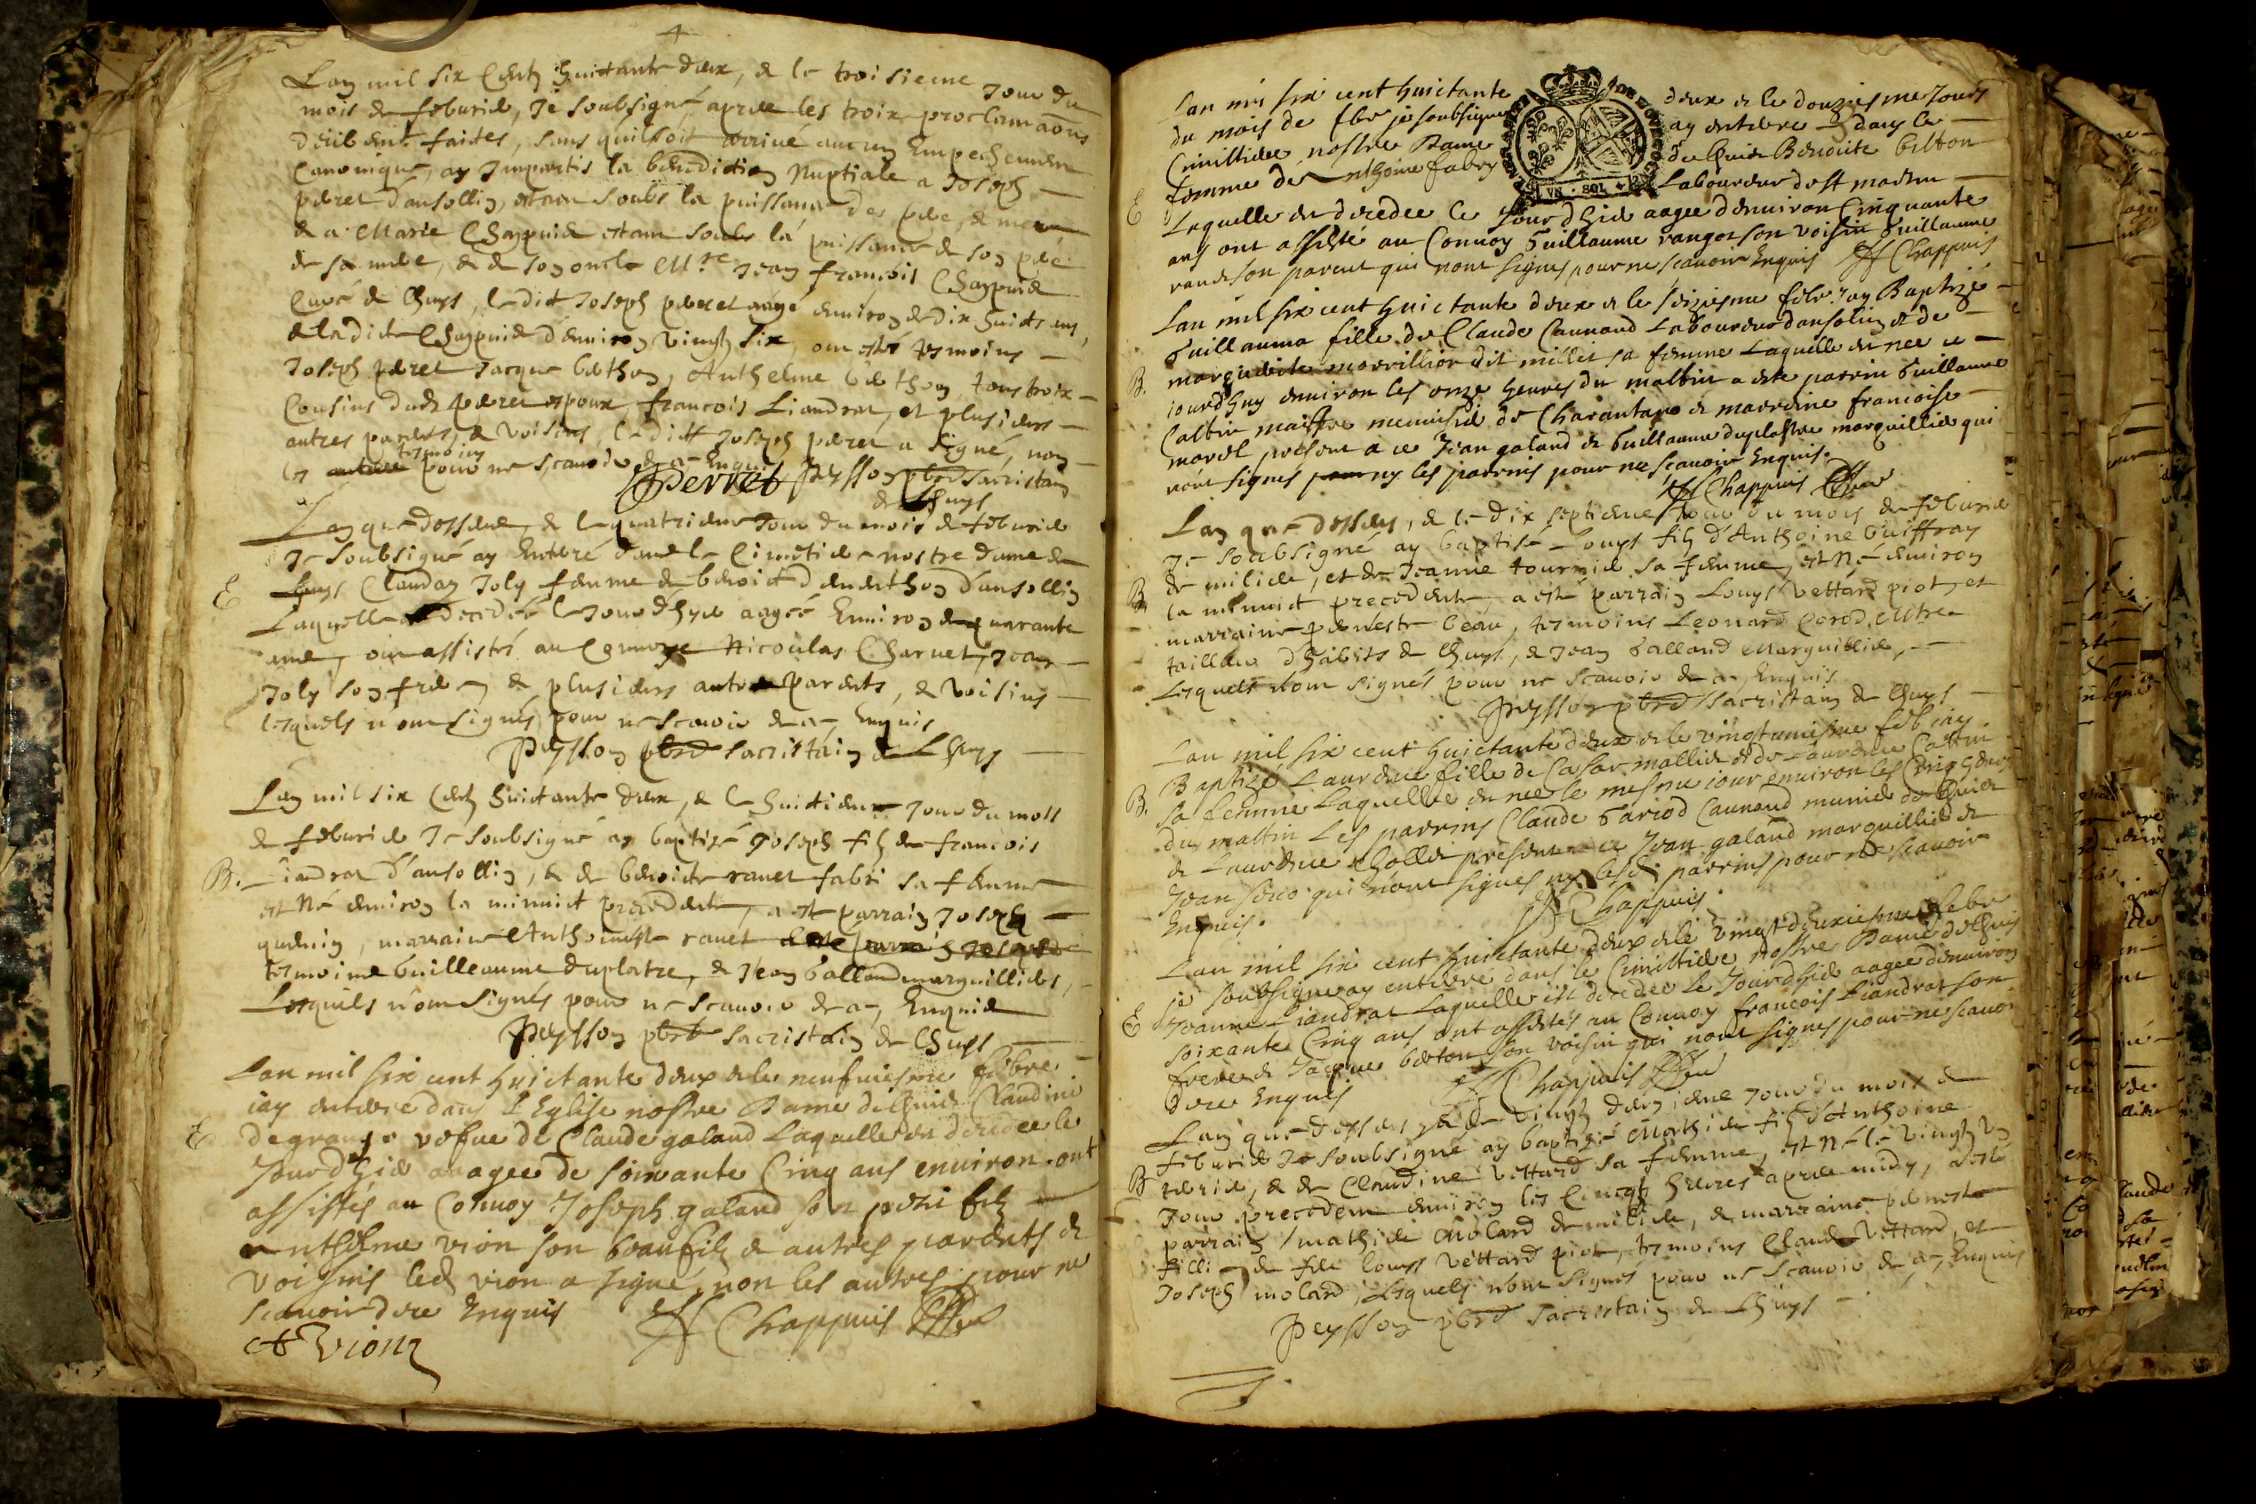 4
Lan mil six Centz huictante deux, & le troisieme Jour du
mois de feburier, Je soubsigné apres les trois proclamaons
deüement faites, sans quil soit arrivé aucun Empeschement
Canonique, ay Impartis la benediction Nuptiale a Joseph
peret d'ansollin, estant soubs la puissance de pere, & mere
& a Marie Chappuis estant soubs la puissance de son pere
de sa mere, & de son oncle Mre Jean françois Chappuis
Curé de Lhuys, ledict Joseph peret aagé denviron de dix huict ans
& ladicte Chappuis d'environ vingt six, ont esté tesmoins
Joseph peret Jacque bethon, Anthelme bethon, tous trois
Cousins dudt peret espoux, françois Liandrat, et plusieurs
autres parents, & voisins, ledict Joseph peret a signé, non
les tesmoins pour ne scavoir de ce Enquis
Perret Peysson pbre sacristain
de Lhuys
Lan que dessus, & le quatrieme Jour du mois de feburier
Je soubsigné ay Enterré dans le Cimetiere nostre dame de
Lhuys Claudaz Joly femme de benoict denerthon d'ansollin
Laquelle est decedée le Jour dhyer aagée Environ de quarante
ans, ont assisté au Convoye Nicoulas Charvet, Jean
Joly son frere, & plusieurs autres parents, & voisins
lesquels n'ont signés pour ne scavoir de ce Enquis
Peysson pbre sacristain de Lhuys
Lan mil six Centz huictante deux, & le huictieme Jour du mois
de feburier Je soubsigné ay baptizé Joseph filz de francois
B. Liandrat d'ansollin, & de benoicte ravet fabri sa femme
est Né environ la minuict precedente, a esté parrain Joseph
quenin, marraine Anthoinette ravet
tesmoins Guilleaume duplatre, & Jean Galland marguilliers,
Lesquels n'ont signés pour ne scavoir de ce, Enquis
Peysson pbre sacristain de Lhuys
Lan mil six cent huictante deux & le neufviesme febvre
E jay enterré dans L'Eglise nostre Dame de Lhuis Claudine
degrange vefve de Claude galand Laquelle est decedee le
Jourdhier aagee de soixante Cinq ans environ. ont
assistés au Convoy Joseph galand son petit filz
Anthelme vion son beaufilz & autres parents &
voisins led vion a signé, non les autres pour ne
scavoir de ce Enquis JF Chappuis
A Vion
Lan mil six cent huictante deux & le douziesme Jour
du mois de fbr je soubsigné ay enterre dans le
Cimittiere nostre Dame de Lhuis Benoite billon
E femme de Anthoine fabry Laboureur de St martin
Laquelle est decedee le Jour dhier aagee d'environ Cinquante
ans ont assisté au Convoy Guillaume rangot son voisin Guillaume
son parent qui n'ont signes pour ne scavoir Enquis JF Chappuis
Lan mil six cent huictante deux & le seiziesme febr Jay Baptizé
Guillauma fille de Claude Caunand Laboureur dansolin & de
B. marguerite morvillion dit millet sa femme Laquelle est nee ce
jourdhuy environ les onze heures du mattin a este parrin Guillaume
Cattin maistre menuisier de Charantane & marrine francoise
morel present a ce Jean galand & Guillaume duplastre marguillier qui
n'ont signés ny les parrins pour ne scavoir Enquis.
JF Chappuis
Lan que dessus, & le dix septieme Jour du mois de feburier
Je soubsigné ay baptisé Louys filz d'Anthoine Guiffray
B de milieu, et de Jeanne tournier sa femme, est Né environ
la minuict precedente, a esté parrain Louys Vettard piot, et
marraine pernette beau, tesmoins Leonard Cerod Mtre
tailleur d'habits de Lhuys, & Jean Galland Marguillier,
Lesquels n'ont signés pour ne scavoir de ce, Enquis
Peysson pbre sacristain de Lhuys
Lan mil six cent huictante deux & le vingtuniesme feb jay
B. Baptizé Laurence fille de Cesar mallier & de Laurence Cattin
sa femme Laquelle est nee le mesme jour environ les Cinq heures
du mattin Les parrins Claude Gariod Caunand munier de Lhuis
& Laurence Chollet present a ce Jean galand marguillier &
Jean qui n'ont signes ny lesd parrins pour ne scavoir
Enquis. JF Chappuis
Lan mil six cent huictante deux & le vingtdeuxiesme febr
je soubsigné ay enterré dans le Cimittiere nostre Dame de Lhuis
E Jeanne Liandrat Laquelle est decedee le Jourdhier aagee d'environ
soixante Cinq ans ont assistés au Convoy francois Liandrat son
frere & Jacque berton son voisin qui n'ont signes pour ne scavoir
de ce Enquis JF Chappuis
Lan que dessus, & le vingt deuzieme Jour du mois de
feburier Je soubsigné ay baptizé Mathieu filz d'Anthoine
B & de Claudine Vettard sa femme, est Né le vingt un
Jour precedent environ les Cincqz heures apres midy, a esté
parrain mathieu Molard de milieu, & marraine pernette
fille de feu Louys Vettard piot, tesmoins Claude Vettard, et
Joseph molard, Lesquels n'ont signés pour ne scavoir de ce, Enquis
Peysson pbre sacristain de Lhuys